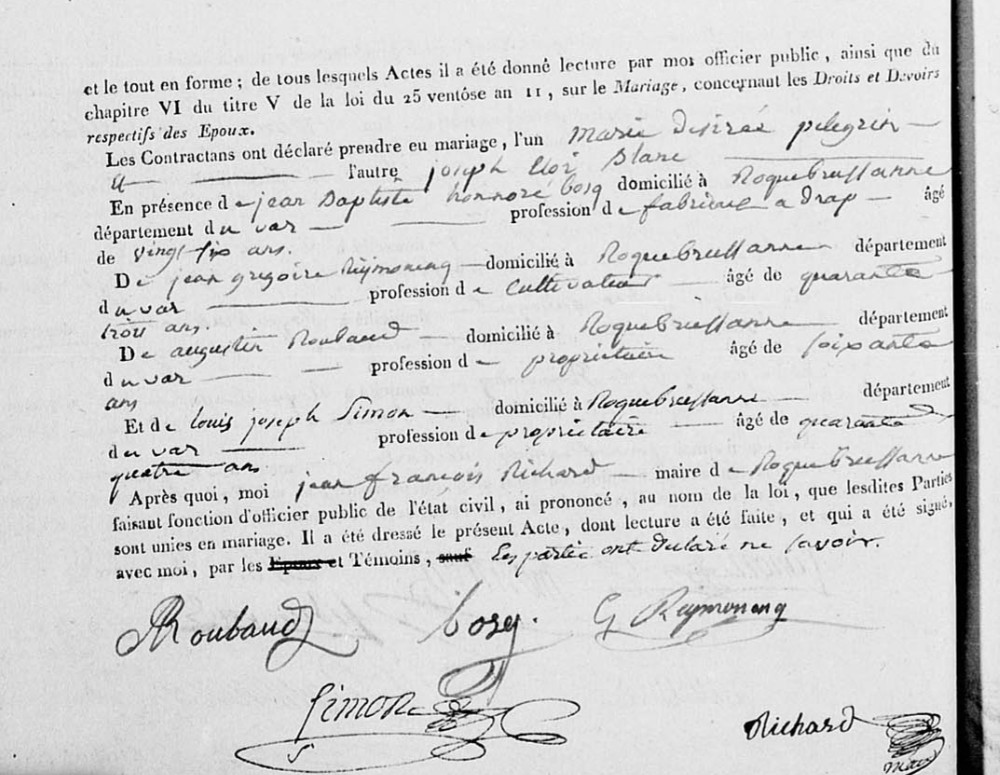 et le tout en forme ; de tous lesquels Actes il a été donné lecture par moi officier public, ainsi que du
chapitre VI du titre V de la loi du 25 ventôse an 11, sur le Mariage, concernant les Droits et Devoirs
respectifs des Epoux.
Les Contractans ont déclaré prendre eu mariage, l'un marie désirée pelegrin
et l'autre joseph Eloi Blanc
En présence de jean Baptiste honnoré bosq domicilié à Roquebrussanne
département du var profession de fabricant a drap âgé
de vingt six ans.
De jean gregoire Reymonenq domicilié à Roquebrussanne département
du var profession de cultivateur âgé de quarante
trois ans.
De augustin Roubaud domicilié à Roquebrussanne département
du var profession de propriétaire âgé de soixante
ans
Et de louis joseph Simon domicilié à Roquebrussanne département
du var profession de propriétaire âgé de quarante
quatre ans
Après quoi, moi jean françois Richard maire de Roquebrussanne
faisant fonction d'officier public de l'état civil, ai prononcé, au nom de la loi, que lesdites Parties
sont unies en mariage. Il a été dressé le présent Acte, dont lecture a été faite, et qui a été signé,
avec moi, par les Epoux et Témoins, sauf Les partie ont déclaré ne savoir.
Roubaud bosq. G Reymonenq
Simon
Richard
maire